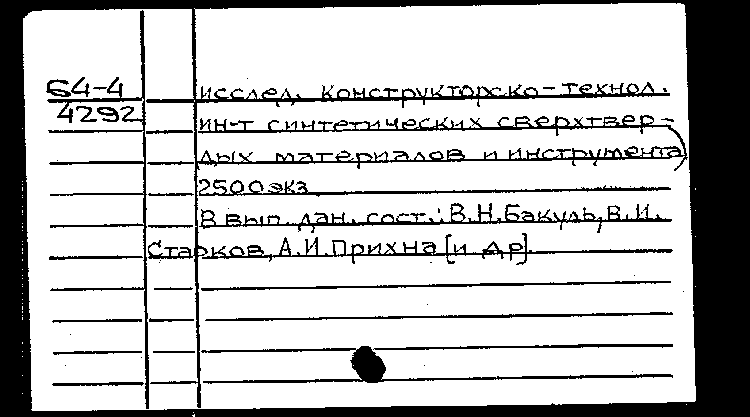 64-4 исслед. конструкторско-технол.
4292 ин-т синтетических сверхтвер-
дых материалов и инструмента)
2500 экз
В вып. дан. сост.: В.Н.Бакуль, В.И.
Старков, А.И.Прихна [и др].